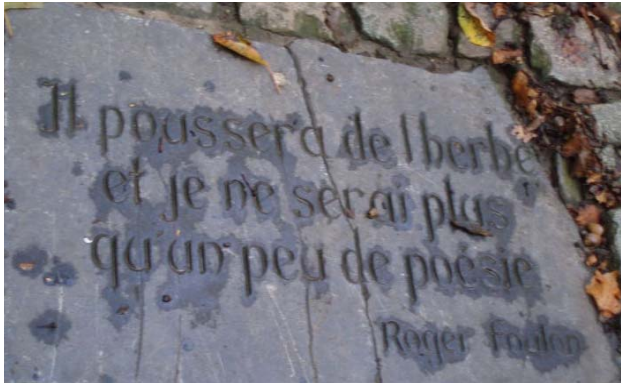 Il poussera de l'herbe
et je ne serai plus
qu'un peu de poésie
Roger Foulon